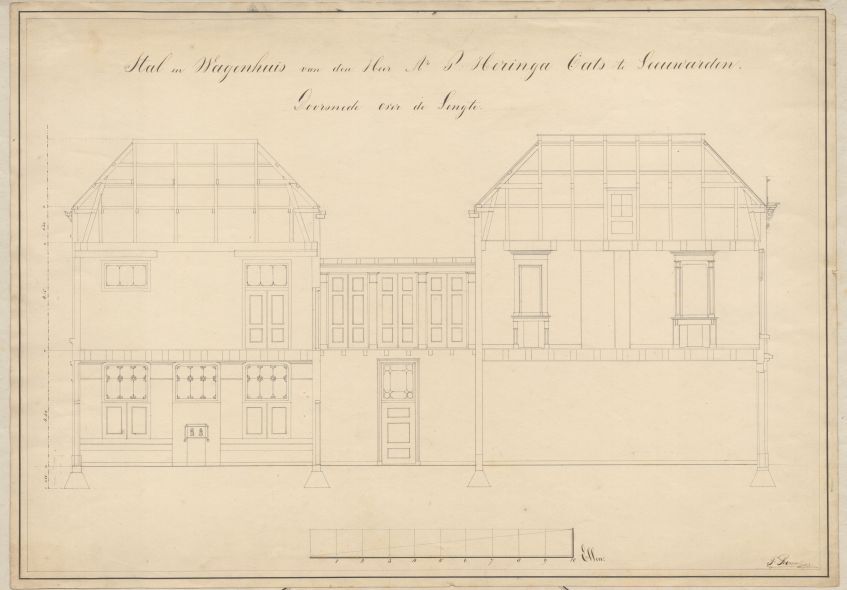 Stal en Wagenhuis van den Heer Mr P. Heringa Cats te Leeuwarden.
Doorsnede over de Lengte.
1 2 3 4 5 6 7 8 9 10 Ellen.